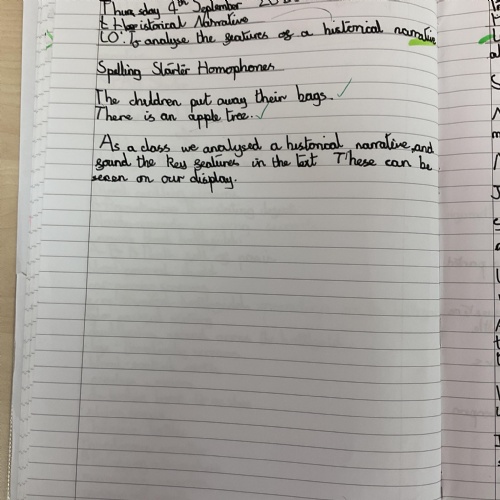 Thursday 9th September 20
Historical Narrative
LO: To analyse the features of a historical narrative
Spelling Starter Homophones
The children put away their bags.
There is an apple tree.
As a class we analysed a historical narrative, and
found the key features in the text These can be
seen on our display.